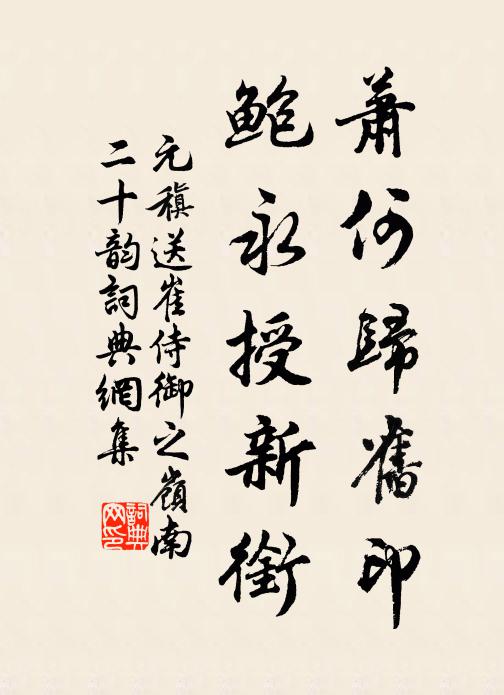 蕭何歸舊印
鮑永授新銜
元稹送崔侍御之嶺南
二十韵詞典網集
詞典
网印